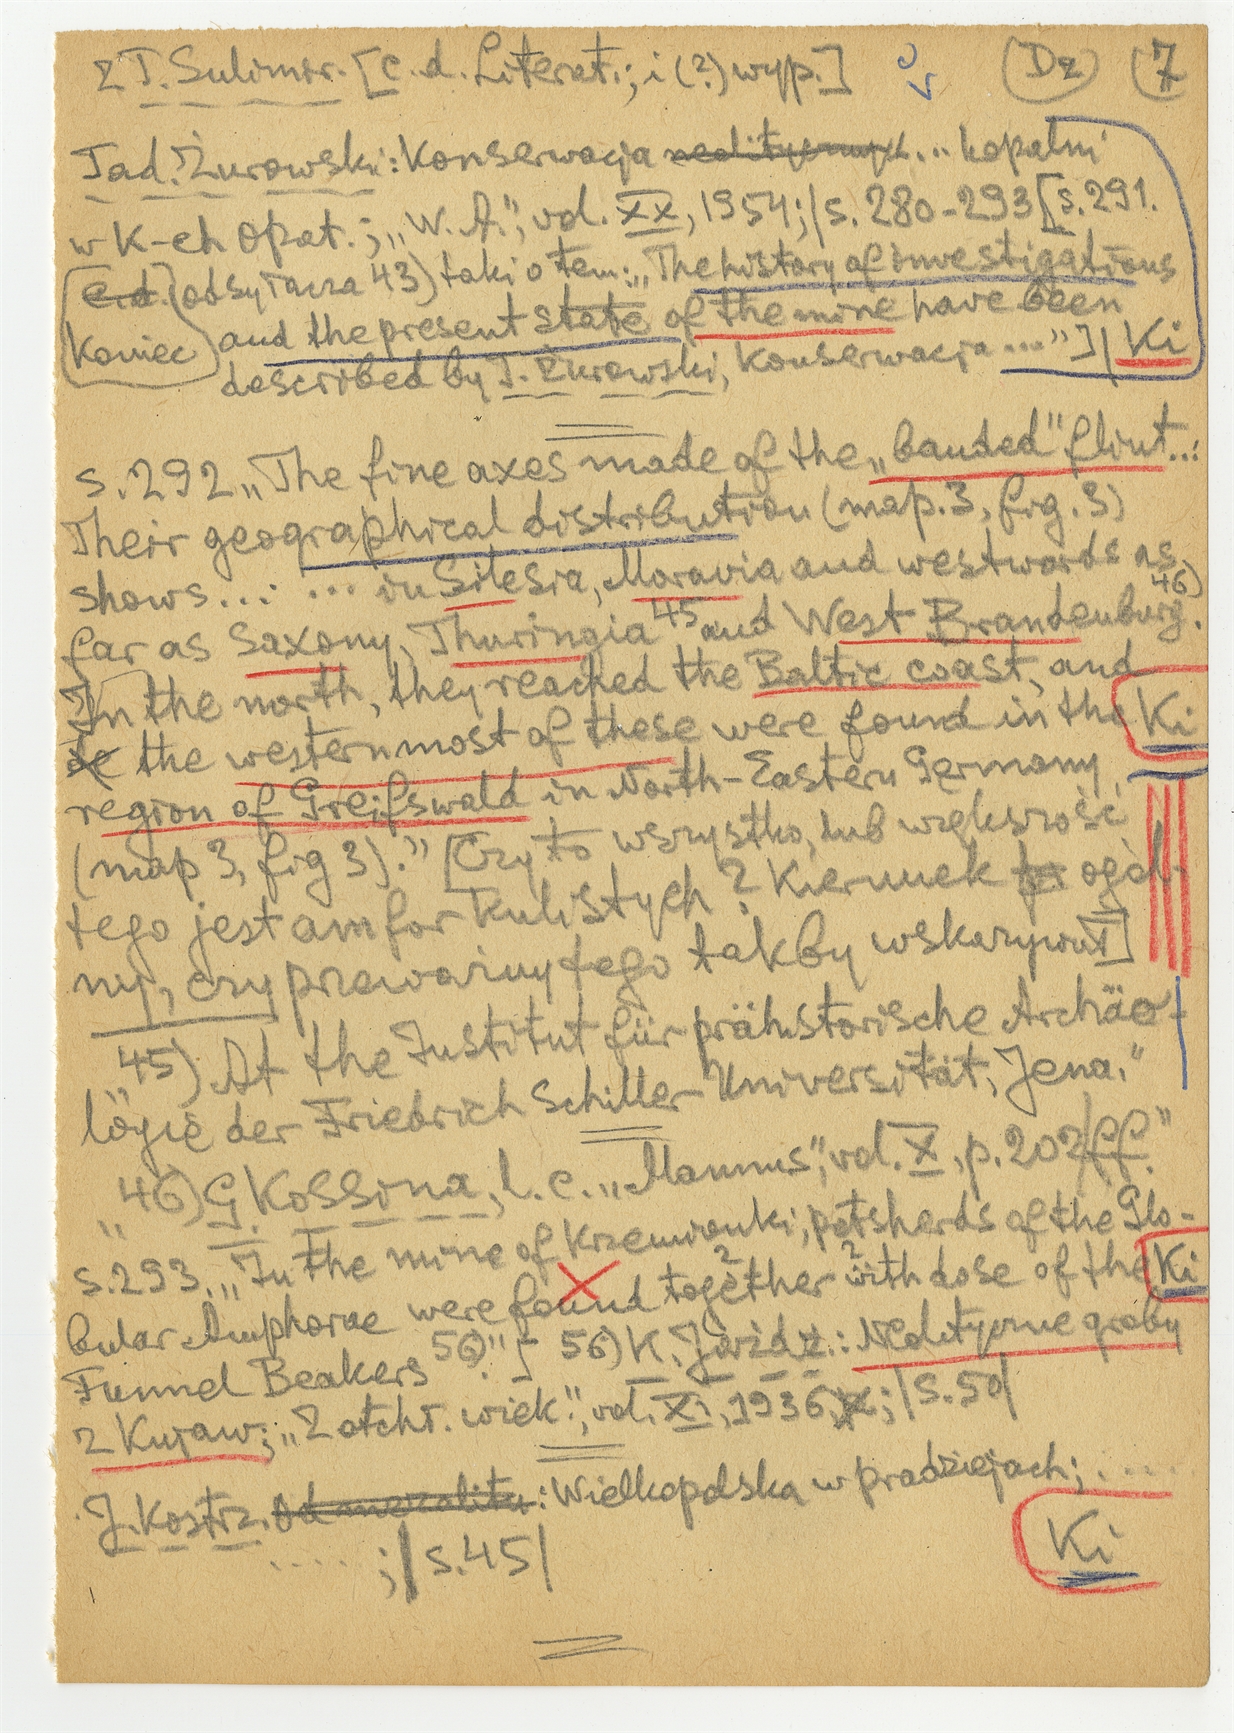 z T. Sulimir. [c. d. Literat.; i (?) wyp.] Dz 7
Tad. Żurowski: Konserwacja neolitycznych ... kopalni
w K-ch Opat.; „W. A.", vol. XX, 1954; |s. 280-293 [s. 291.
[c.d. (odsyłacza 43) taki o tem: „The history of investigations
Koniec and the present state of the mine have been
described by T. Żurowski, Konserwacja ..."]| Ki
s. 292 „The fine axes made of the „banded" flint...:
Their geographical distribution (map. 3, fig. 3)
shows...: ... in Silesia, Moravia and westwords as
far as Saxony, Thuringia 45 and West Brandenburg. 46)
In the north, they reached the Baltic coast, and
the westernmost of these were found in the Ki
region of Greifswald in North-Eastern Germany
(map 3, fig 3)." [Czy to wszystko, lub większość
tego jest amfor kulistych? Kierunek ogól-
ny, czy przeważny tego takby wskazywał]
„45) At the Institut für prähistorische Archäo-
logie der Friedrich Schiller Universität, Jena."
„46) G. Kossina, l. c. „Mannus", vol. X, p. 202 ff."
s. 293. „In the mine of Krzemionki, potsherds of the Glo-
bular Amphorae were found together 2 with 2 dose of the Ki
Funnel Beakers 56)." 56) K. Jażdż.: Neolityczne groby
z Kujaw; „Z otchł. wiek.", vol. XI, 1936; |s. 50|
J. Kostrz. Od mezolitu: Wielkopolska w pradziejach; ....
....; |s. 45| Ki